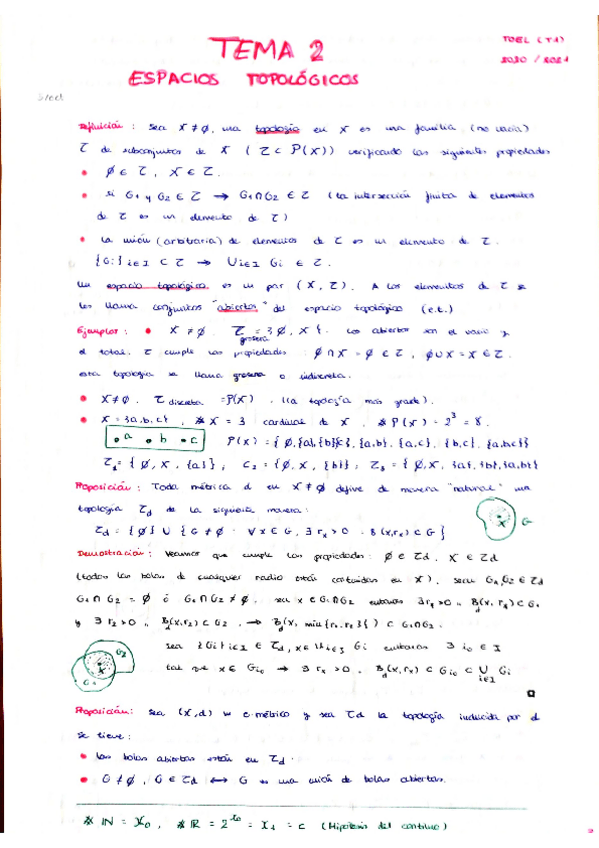 TEMA 2
TOEL (T1)
2020 / 2021
ESPACIOS TOPOLÓGICOS
Definición : Sea X ≠ ∅, una topología en X es una familia (no vacía)
τ de subconjuntos de X ( τ ⊂ P(X)) verificando las siguientes propiedades
• ∅ ∈ τ , X ∈ τ .
• si G1 y G2 ∈ τ → G1 ∩ G2 ∈ τ (la intersección finita de elementos
de τ es un elemento de τ)
• La unión (arbitraria) de elementos de τ es un elemento de τ.
{Gi}i∈I ⊂ τ → Ui∈I Gi ∈ τ.
Un espacio topológico es un par (X, τ). A los elementos de τ se
les llama conjuntos "abiertos" del espacio topológico (e.t.)
Ejemplos : • X ≠ ∅. τ grosera = {∅, X}. Los abiertos son el vacío y
el total. τ cumple las propiedades : ∅ ∩ X = ∅ ∈ τ , ∅ ∪ X = X ∈ τ.
esta topología se llama grosera o indiscreta.
• X ≠ ∅. τ discreta = P(X) . (la topología más grande).
• X = {a,b,c} , # X = 3 cardinal de X , # P(X) = 2³ = 8.
• a • b • c P(X) = { ∅, {a}, {b}, {c}, {a,b}, {a,c}, {b,c}, {a,b,c}}
τ1 = { ∅, X, {a}} ; τ2 = {∅, X, {b}} ; τ3 = { ∅, X, {a}, {b}, {a,b}}
Proposición : Toda métrica d en X ≠ ∅ define de manera "natural" una
topología τd de la siguiente manera :
τd = {∅} ∪ { G ≠ ∅ : ∀ x ∈ G, ∃ rx > 0 . B(x,rx) ⊂ G }
x G
Demostración : Veamos que cumple las propiedades : ∅ ∈ τd , X ∈ τd
(todas las bolas de cualquier radio están contenidas en X). sean G1, G2 ∈ τd
G1 ∩ G2 = ∅ ó G1 ∩ G2 ≠ ∅. sea x ∈ G1∩G2 entonces ∃ r1 > 0 . Bd(x, r1) ⊂ G1
y ∃ r2 > 0 . Bd(x,r2) ⊂ G2 . → Bd(x, min{r1,r2}) ⊂ G1∩G2.
G1 G2 x
sea {Gi}i∈I ⊂ τd, x ∈ Ui∈I Gi entonces ∃ i0 ∈ I
tal que x ∈ Gi0 → ∃ rx > 0 . Bd(x,rx) ⊂ Gi0 ⊂ U i∈I Gi
Proposición: Sea (X,d) un e.métrico y sea τd la topología inducida por d
se tiene :
• Las bolas abiertas están en τd.
• G ≠ ∅, G ∈ τd ↔ G es una unión de bolas abiertas.
# ℕ = ℵ0 , # ℝ = 2^ℵ0 = ℵ1 = c (Hipótesis del continuo)